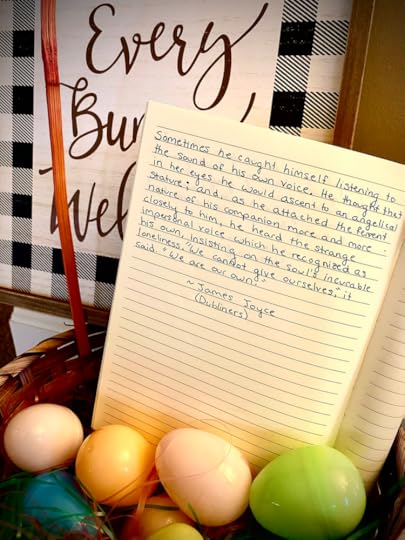 Every
Bun
Wel
Sometimes he caught himself listening to
the sound of his own voice. He thought that
in her eyes he would ascent to an angelical
stature; and, as he attached the fervent
nature of his companion more and more
closely to him, he heard the strange
impersonal voice which he recognized as
his own, insisting on the soul's incurable
loneliness. "We cannot give ourselves," it
said. "We are our own."
~ James Joyce
(Dubliners)